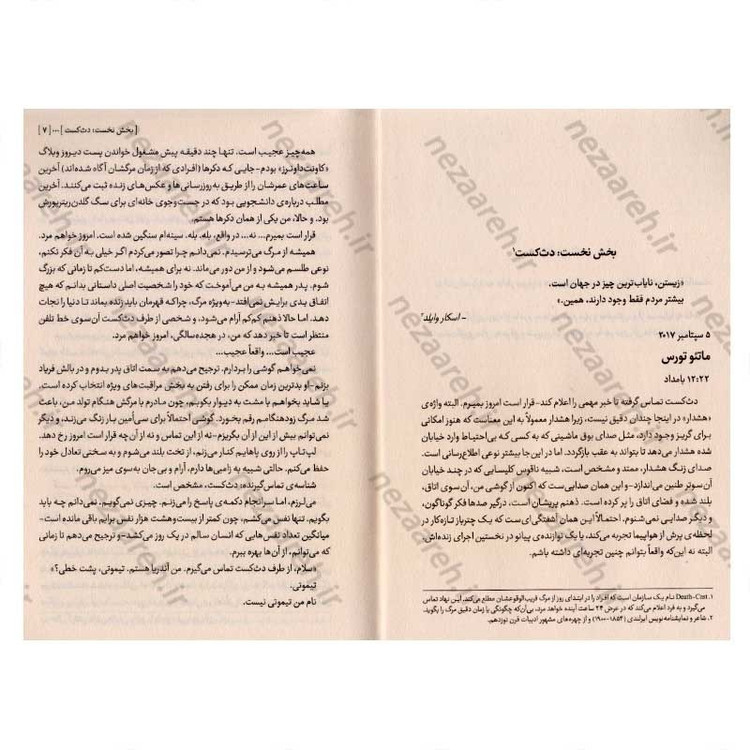 بخش نخست: دث‌کست¹
«زیستن، نایاب‌ترین چیز در جهان است.
بیشتر مردم فقط وجود دارند، همین.»
- اسکار وایلد²
۵ سپتامبر ۲۰۱۷
ماتئو تورس
۱۲:۲۲ بامداد
دث‌کست تماس گرفته تا خبر مهمی را اعلام کند-قرار است امروز بمیرم. البته واژه‌ی
«هشدار» در اینجا چندان دقیق نیست، زیرا هشدار معمولاً به این معناست که هنوز امکانی
برای گریز وجود دارد، مثل صدای بوق ماشینی که به کسی که بی‌احتیاط وارد خیابان
شده هشدار می‌دهد تا بتواند به عقب بازگردد. اما در این جا بیشتر نوعی اطلاع‌رسانی است.
صدای زنگ هشدار، ممتد و مشخص است، شبیه ناقوس کلیسایی که در چند خیابان
آن‌سوتر طنین می‌اندازد-و این همان صدایی‌ست که اکنون از گوشی من، آن سوی اتاق،
بلند شده و فضای اتاق را پر کرده است. ذهنم پریشان است، درگیر صدها فکر گوناگون،
و دیگر صدایی نمی‌شنوم. احتمالاً این همان آشفتگی‌ای ست که یک چترباز تازه‌کار در
لحظه‌ی پرش از هواپیما تجربه می‌کند، یا یک نوازنده‌ی پیانو در نخستین اجرای زنده‌اش،
البته نه این‌که واقعاً بتوانم چنین تجربه‌ای داشته باشم.
۱. Death-Cast نام یک سازمان است که افراد را در ابتدای روز از مرگ قریب‌الوقوعشان مطلع می‌کند. این نهاد تماس
می‌گیرد و به فرد اعلام می‌کند که در عرض ۲۴ ساعت آینده خواهد مرد، بی‌آن‌که چگونگی یا زمان دقیق مرگ را بگوید.
۲. شاعر و نمایشنامه‌نویس ایرلندی (۱۸۵۴-۱۹۰۰) و از چهره‌های مشهور ادبیات قرن نوزدهم.
[بخش نخست: دث‌کست]...[۷]
همه‌چیز عجیب است. تنها چند دقیقه پیش مشغول خواندن پست دیروز وبلاگ
«کاونت‌داونرز» بودم-جایی که دکرها (افرادی که از زمان مرگشان آگاه شده‌اند) آخرین
ساعت‌های عمرشان را از طریق به‌روزرسانی‌ها و عکس‌های زنده ثبت می‌کنند. آخرین
مطلب درباره‌ی دانشجویی بود که در جست‌وجوی خانه‌ای برای سگ گلدن‌ریتریورش
بود. و حالا، من یکی از همان دکرها هستم.
قرار است بمیرم... نه... در واقع، بله. بله. سینه‌ام سنگین شده است. امروز خواهم مرد.
همیشه از مرگ می‌ترسیدم. نمی‌دانم چرا تصور می‌کردم اگر خیلی به آن فکر نکنم،
نوعی طلسم می‌شود و از من دور می‌ماند. نه برای همیشه، اما دست‌کم تا زمانی که بزرگ
شوم. پدر همیشه به من می‌آموخت که خود را شخصیت اصلی داستانی بدانم که هیچ
اتفاق بدی برایش نمی‌افتد-به‌ویژه مرگ، چراکه قهرمان باید زنده بماند تا دنیا را نجات
دهد. اما حالا ذهنم کم‌کم آرام می‌شود، و شخصی از طرف دث‌کست آن سوی خط تلفن
منتظر است تا خبر دهد که من، در هجده‌سالگی، امروز خواهم مرد.
عجیب است... واقعاً عجیب...
نمی‌خواهم گوشی را بردارم. ترجیح می‌دهم به سمت اتاق پدر بدوم و در بالش فریاد
بزنم-او بدترین زمان ممکن را برای رفتن به بخش مراقبت‌های ویژه انتخاب کرده است.
یا شاید بخواهم با مشت به دیوار بکوبم، چون مادرم با مرگش هنگام تولد من، باعث
شد مرگ زودهنگامم رقم بخورد. گوشی احتمالاً برای سی‌اُمین بار زنگ می‌زند، و
نمی‌توانم بیش از این از آن بگریزم-نه از این تماس و نه از آن‌چه قرار است امروز رخ دهد.
لپ‌تاپ را از روی پاهایم کنار می‌زنم، از تخت بلند می‌شوم و به سختی تعادل خود را
حفظ می‌کنم. حالتی شبیه به زامبی‌ها دارم، آرام و بی‌جان به‌سوی میز می‌روم.
شناسه‌ی تماس‌گیرنده: دث‌کست، مشخص است.
می‌لرزم، اما سرانجام دکمه‌ی پاسخ را می‌زنم. چیزی نمی‌گویم. نمی‌دانم چه باید
بگویم. تنها نفس می‌کشم، چون کمتر از بیست‌وهشت هزار نفس برایم باقی مانده است-
میانگین تعداد نفس هایی که انسان سالم در یک روز می‌کشد-و ترجیح می‌دهم تا زمانی
که می‌توانم، از آن‌ها بهره ببرم.
«سلام، از طرف دث‌کست تماس می‌گیرم. من آندریا هستم. تیموتی، پشت خطی؟»
تیموتی.
نام من تیموتی نیست.
nezaareh.ir
nezaareh.ir
nezaareh.ir
nezaareh.ir
nezaareh.ir
nezaareh.ir